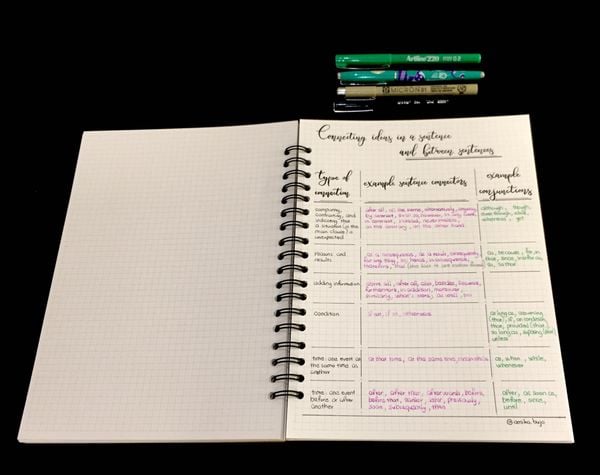 Artline 220
MICRON 01
Connecting ideas in a sentence
and between sentences
type of
connection
example sentence connectors
example
conjunctions
comparing,
contrasting, and
indicating that
a situation (in the
main clause) is
unexpected
after all, all the same, alternatively, anyway,
by contrast, even so, however, in any case,
in contrast, instead, nevertheless,
on the contrary, on the other hand
although, though,
even though, while,
whereas, yet
reasons and
results
as a consequence, as a result, consequently,
for one thing, so, hence, in consequence,
therefore, thus
as, because, for, in
that, since, insofar as,
so, so that
adding information
above all, after all, also, besides,
furthermore, in addition, moreover,
similarly, what's more, as well, too
Condition
if not, if so, otherwise
as long as, assuming
(that), if, on condition
that, provided (that),
so long as, supposing (that)
unless
time: one event at
the same time as
another
at that time, at the same time, meanwhile
as, when, while,
whenever
time: one event
before or after
another
after, after that, afterwards, before,
before that, earlier, later, previously,
soon, subsequently, then
after, as soon as,
before, since,
until